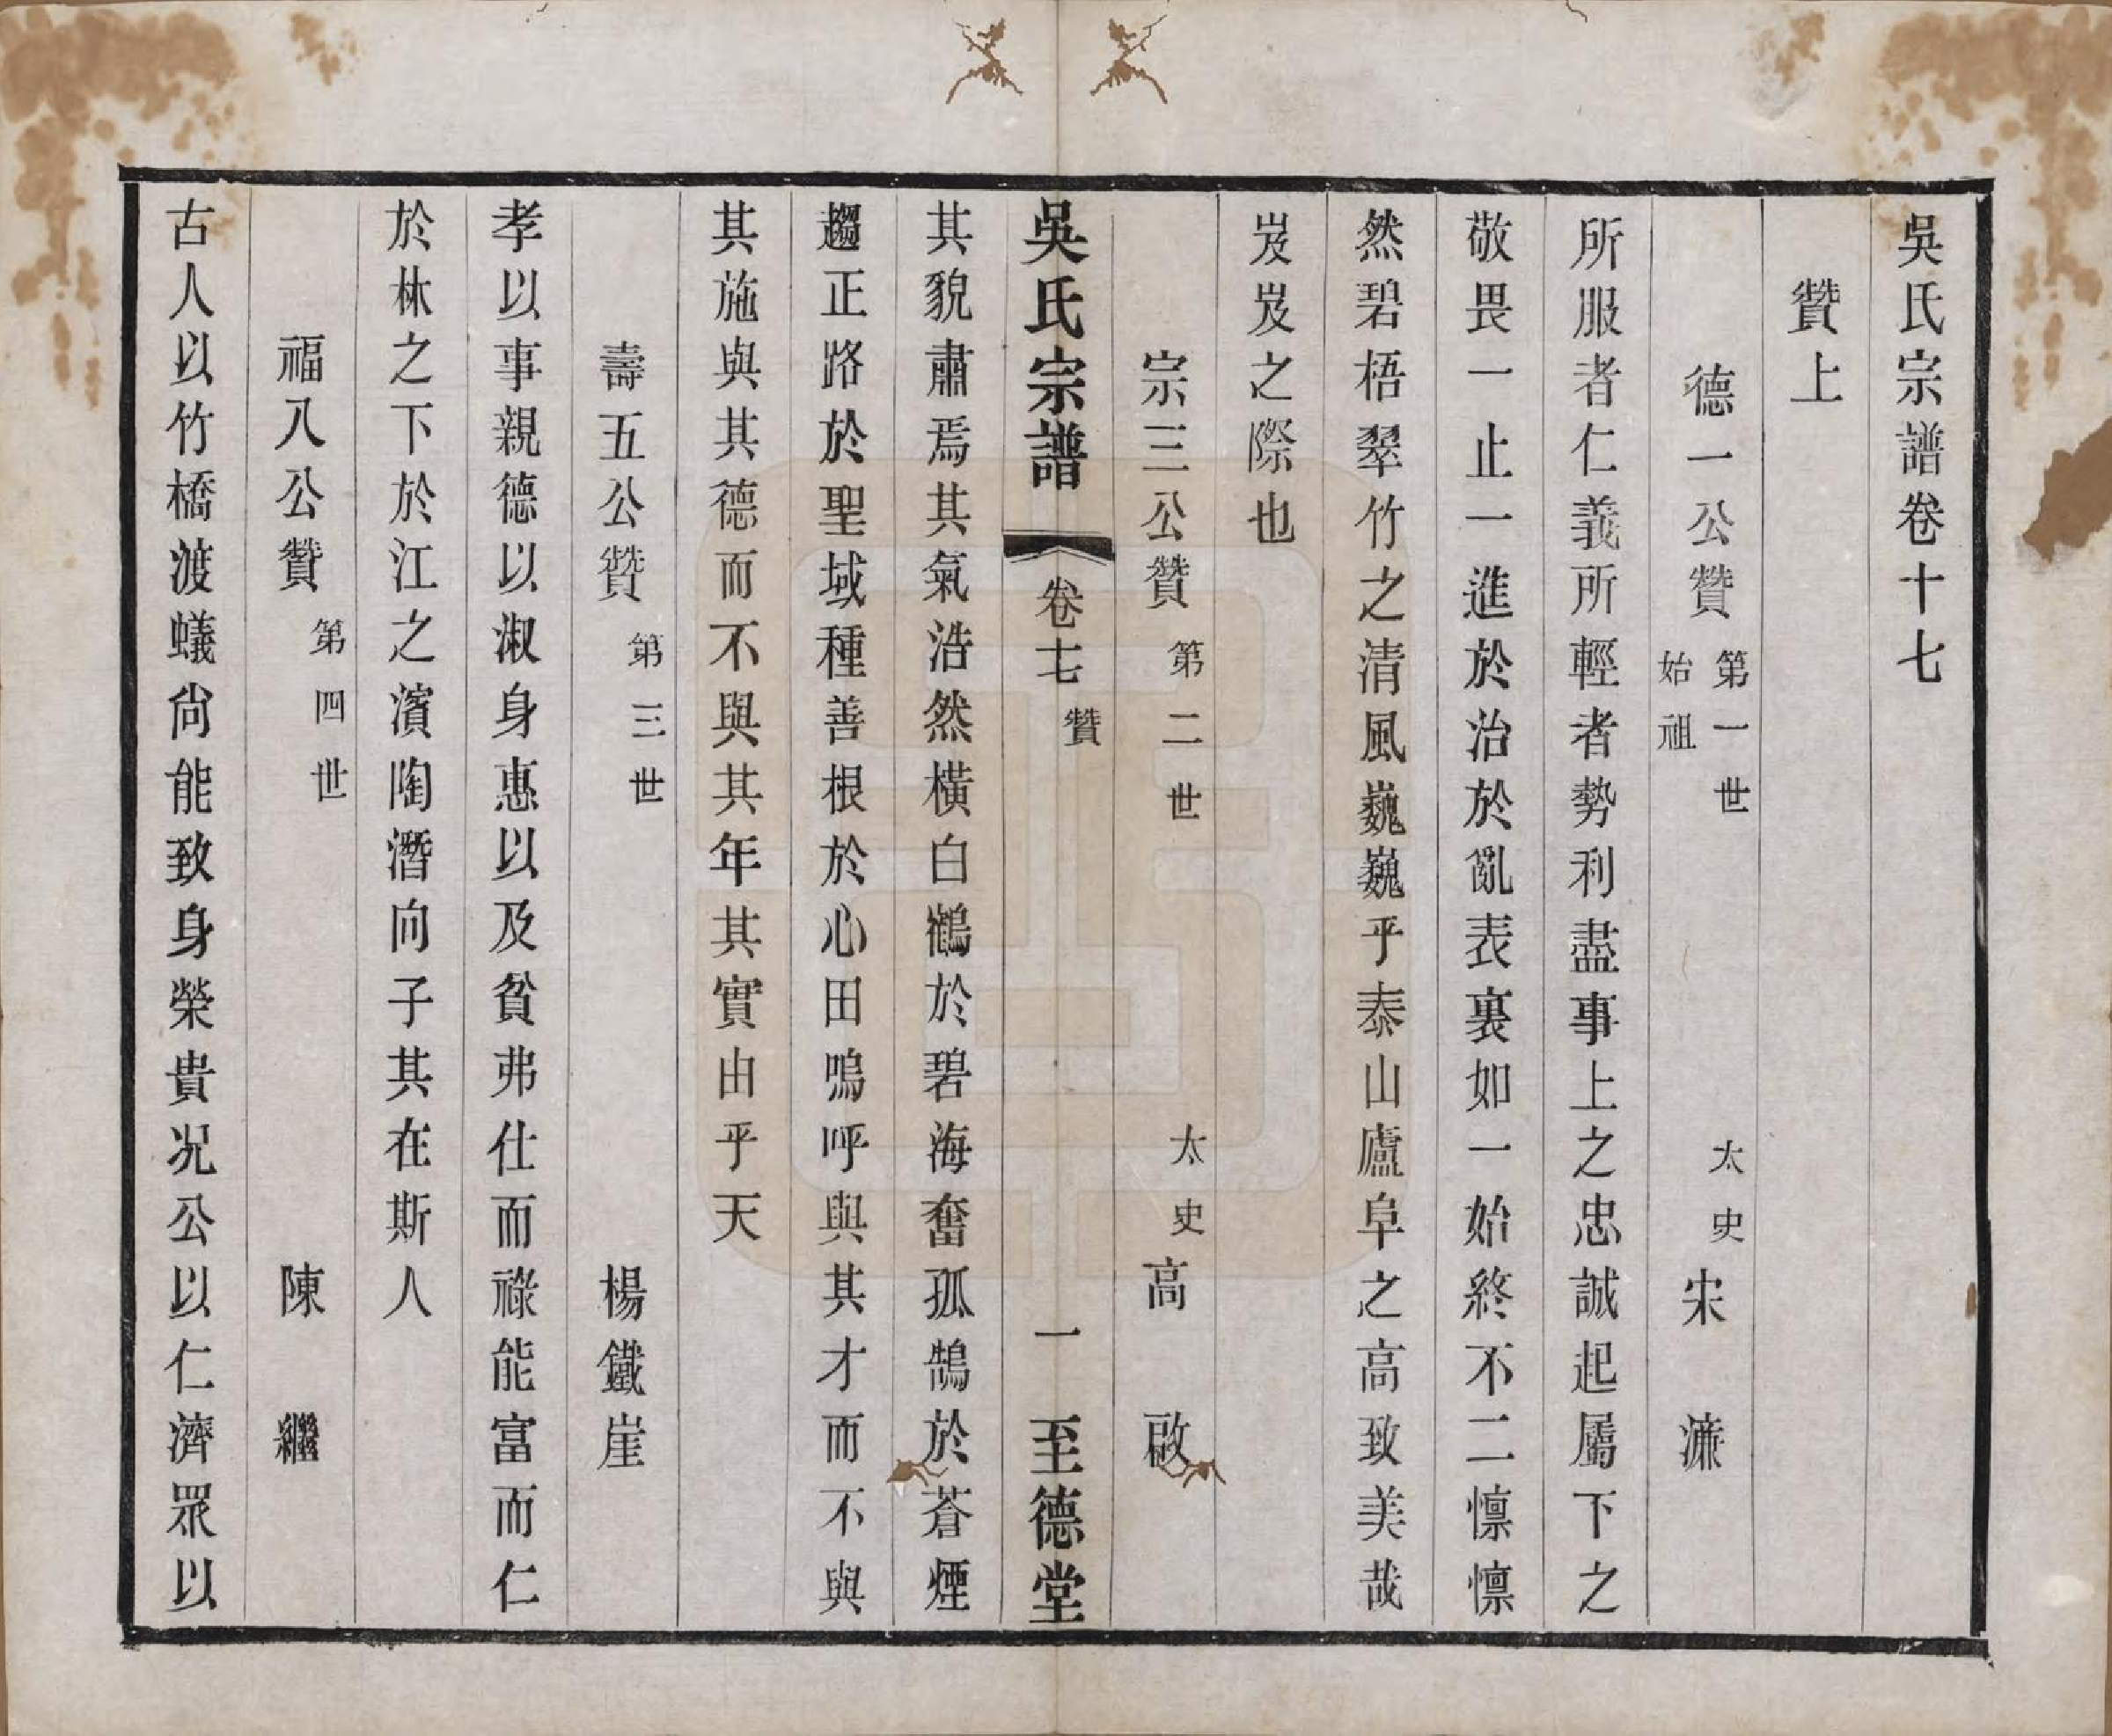 吳氏宗譜卷十七
贊上
德一公贊 第一世 始祖 太史 宋濂
所服者仁義所輕者勢利盡事上之忠誠起屬下之
敬畏一止一進於治於亂表裏如一始終不二懍懍
然碧梧翠竹之清風巍巍乎泰山廬阜之高致美哉
岌岌之際也
宗三公贊 第二世 太史 高啟
吳氏宗譜 卷十七 贊 一 至德堂
其貌肅焉其氣浩然橫白鶴於碧海奮孤鵠於蒼煙
趨正路於聖域種善根於心田嗚呼與其才而不與
其施與其德而不與其年其實由乎天
壽五公贊 第三世 楊鐵崖
孝以事親德以淑身惠以及貧弗仕而祿能富而仁
於林之下於江之濱陶潛向子其在斯人
福八公贊 第四世 陳繼
古人以竹橋渡蟻尙能致身榮貴况公以仁濟眾以